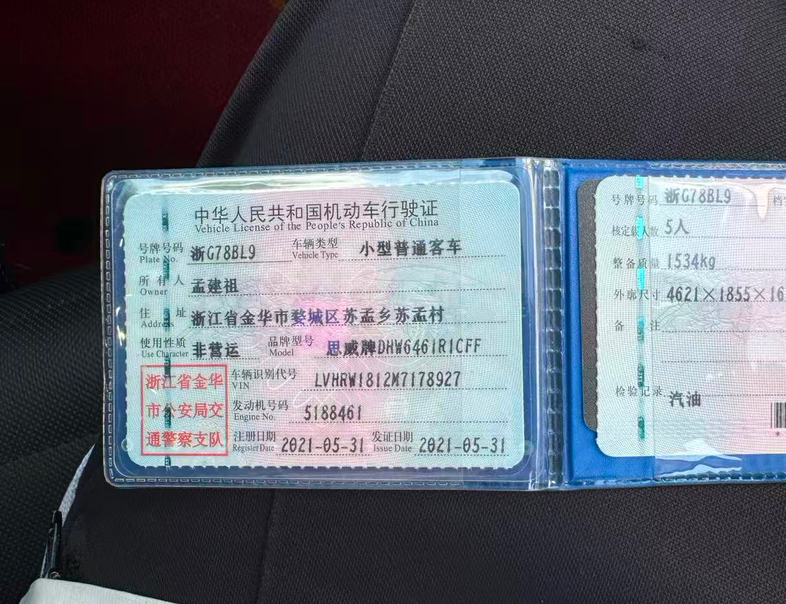 中华人民共和国机动车行驶证
Vehicle License of the People's Republic of China
号牌号码 浙G78BL9 车辆类型 小型普通客车
Plate No. Vehicle Type
所有人 孟建祖
Owner
住址 浙江省金华市婺城区苏孟乡苏孟村
Address
使用性质 非营运 品牌型号 思威牌DHW6461R1CFF
Use Character Model
浙江省金华
市公安局交
通警察支队
车辆识别代号 LVHRW1812M7178927
VIN
发动机号码 5188461
Engine No.
注册日期 2021-05-31 发证日期 2021-05-31
Register Date Issue Date
号牌号码 浙G78BL9
核定载人数 5人
整备质量 1534kg
外廓尺寸 4621×1855×16
备注
检验记录 汽油